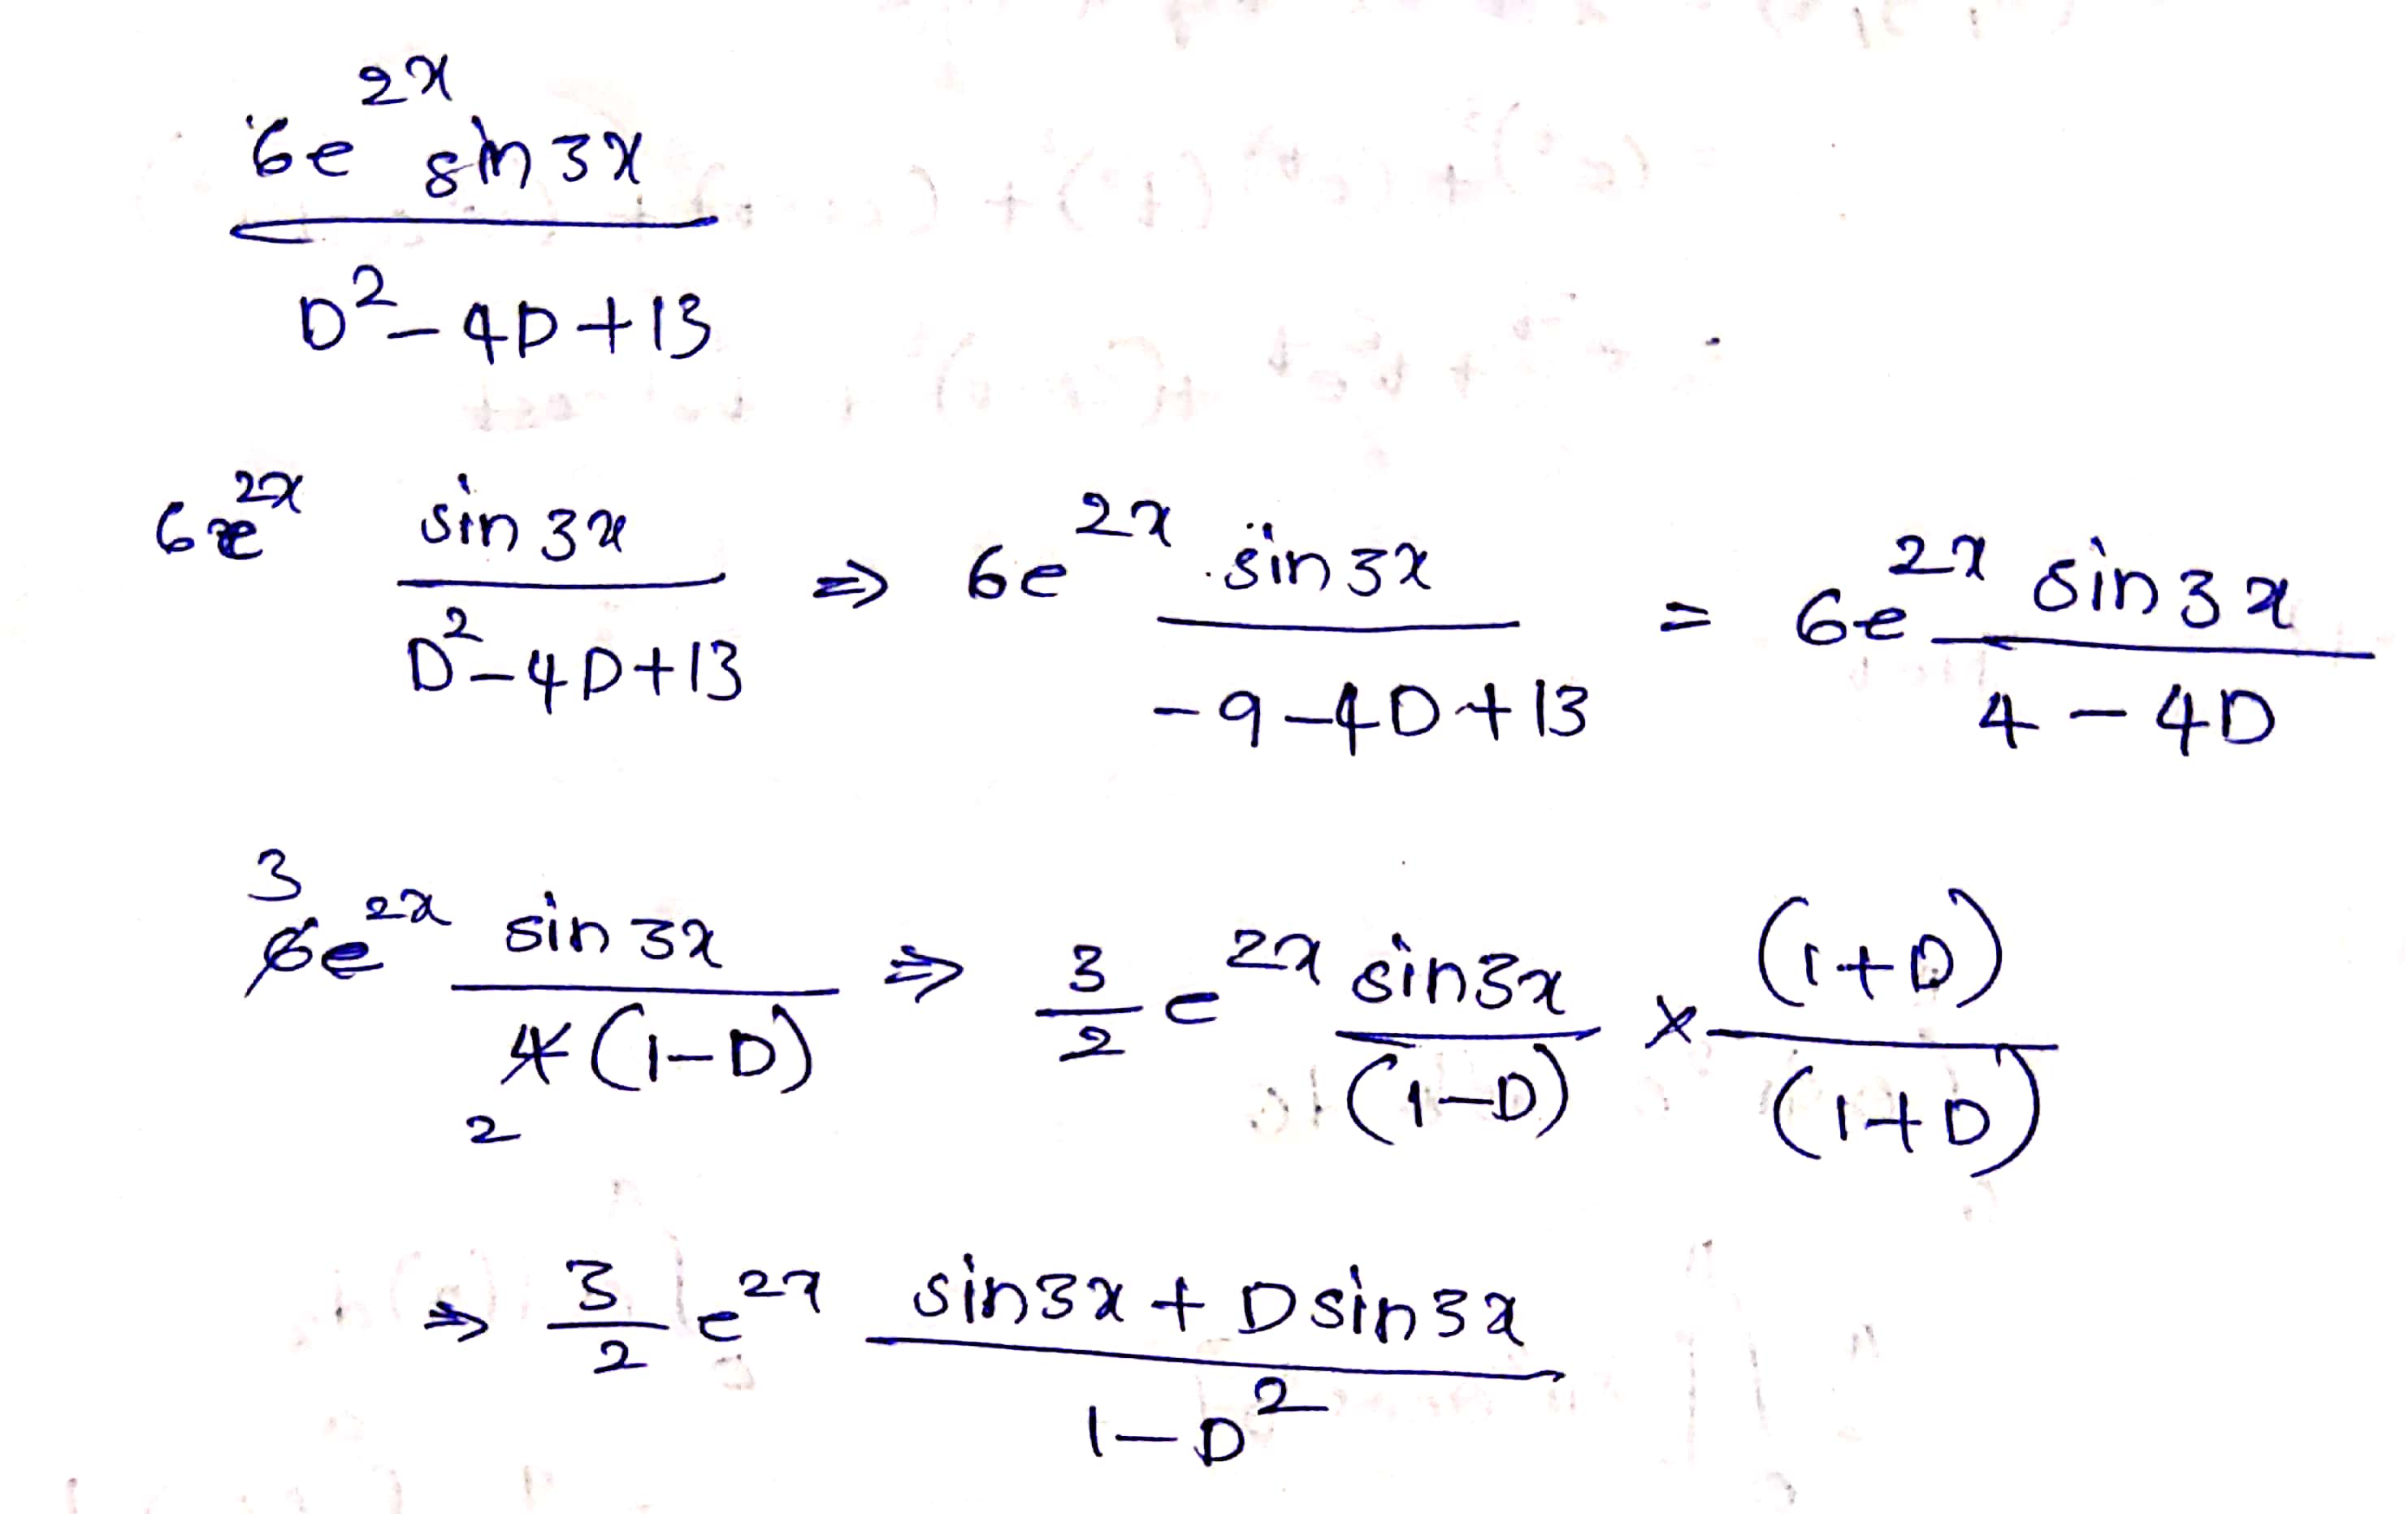 6e^{2x} sin 3x
D² - 4D + 13
6e^{2x} \frac{sin 3x}{D² - 4D + 13} ⇒ 6e^{2x} \frac{sin 3x}{-9 - 4D + 13} = 6e^{2x} \frac{sin 3x}{4 - 4D}
3
6e^{2x} \frac{sin 3x}{4(1 - D)} ⇒ \frac{3}{2} e^{2x} \frac{sin 3x}{(1 - D)} × \frac{(1 + D)}{(1 + D)}
2
⇒ \frac{3}{2} e^{2x} \frac{sin 3x + D sin 3x}{1 - D²}